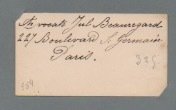 Advocate Jul Beauregard
227 Boulevard S. Germain
Paris.
335
104